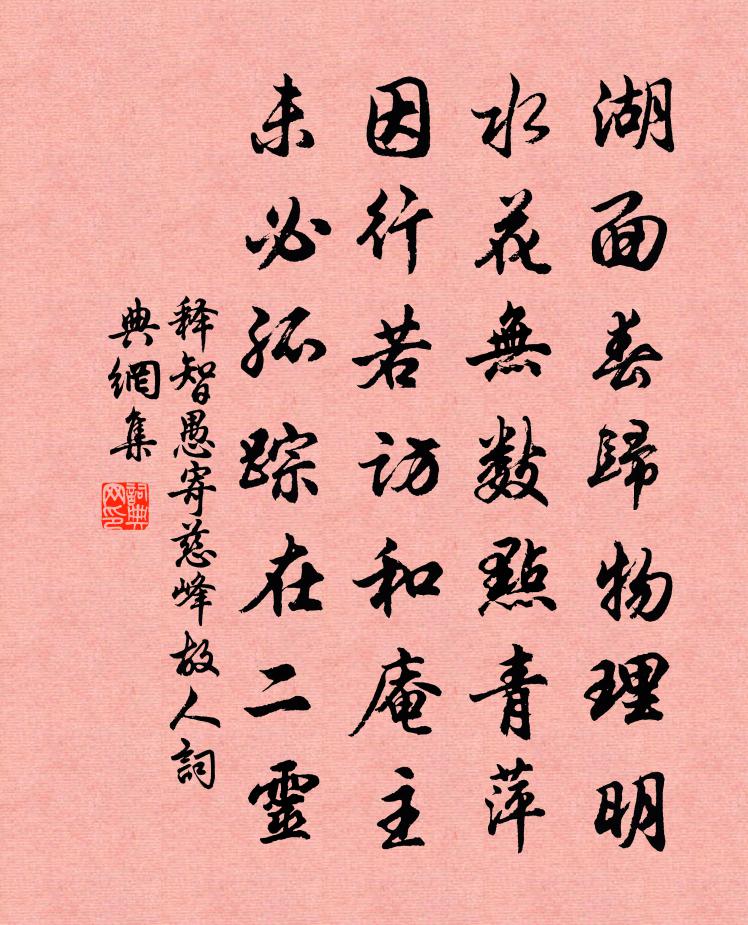 湖面春歸物理明
水花無數點青萍
因行若訪和庵主
未必孤踪在二靈
释智愚寄慈峰故人詞
典網集
詞典网印